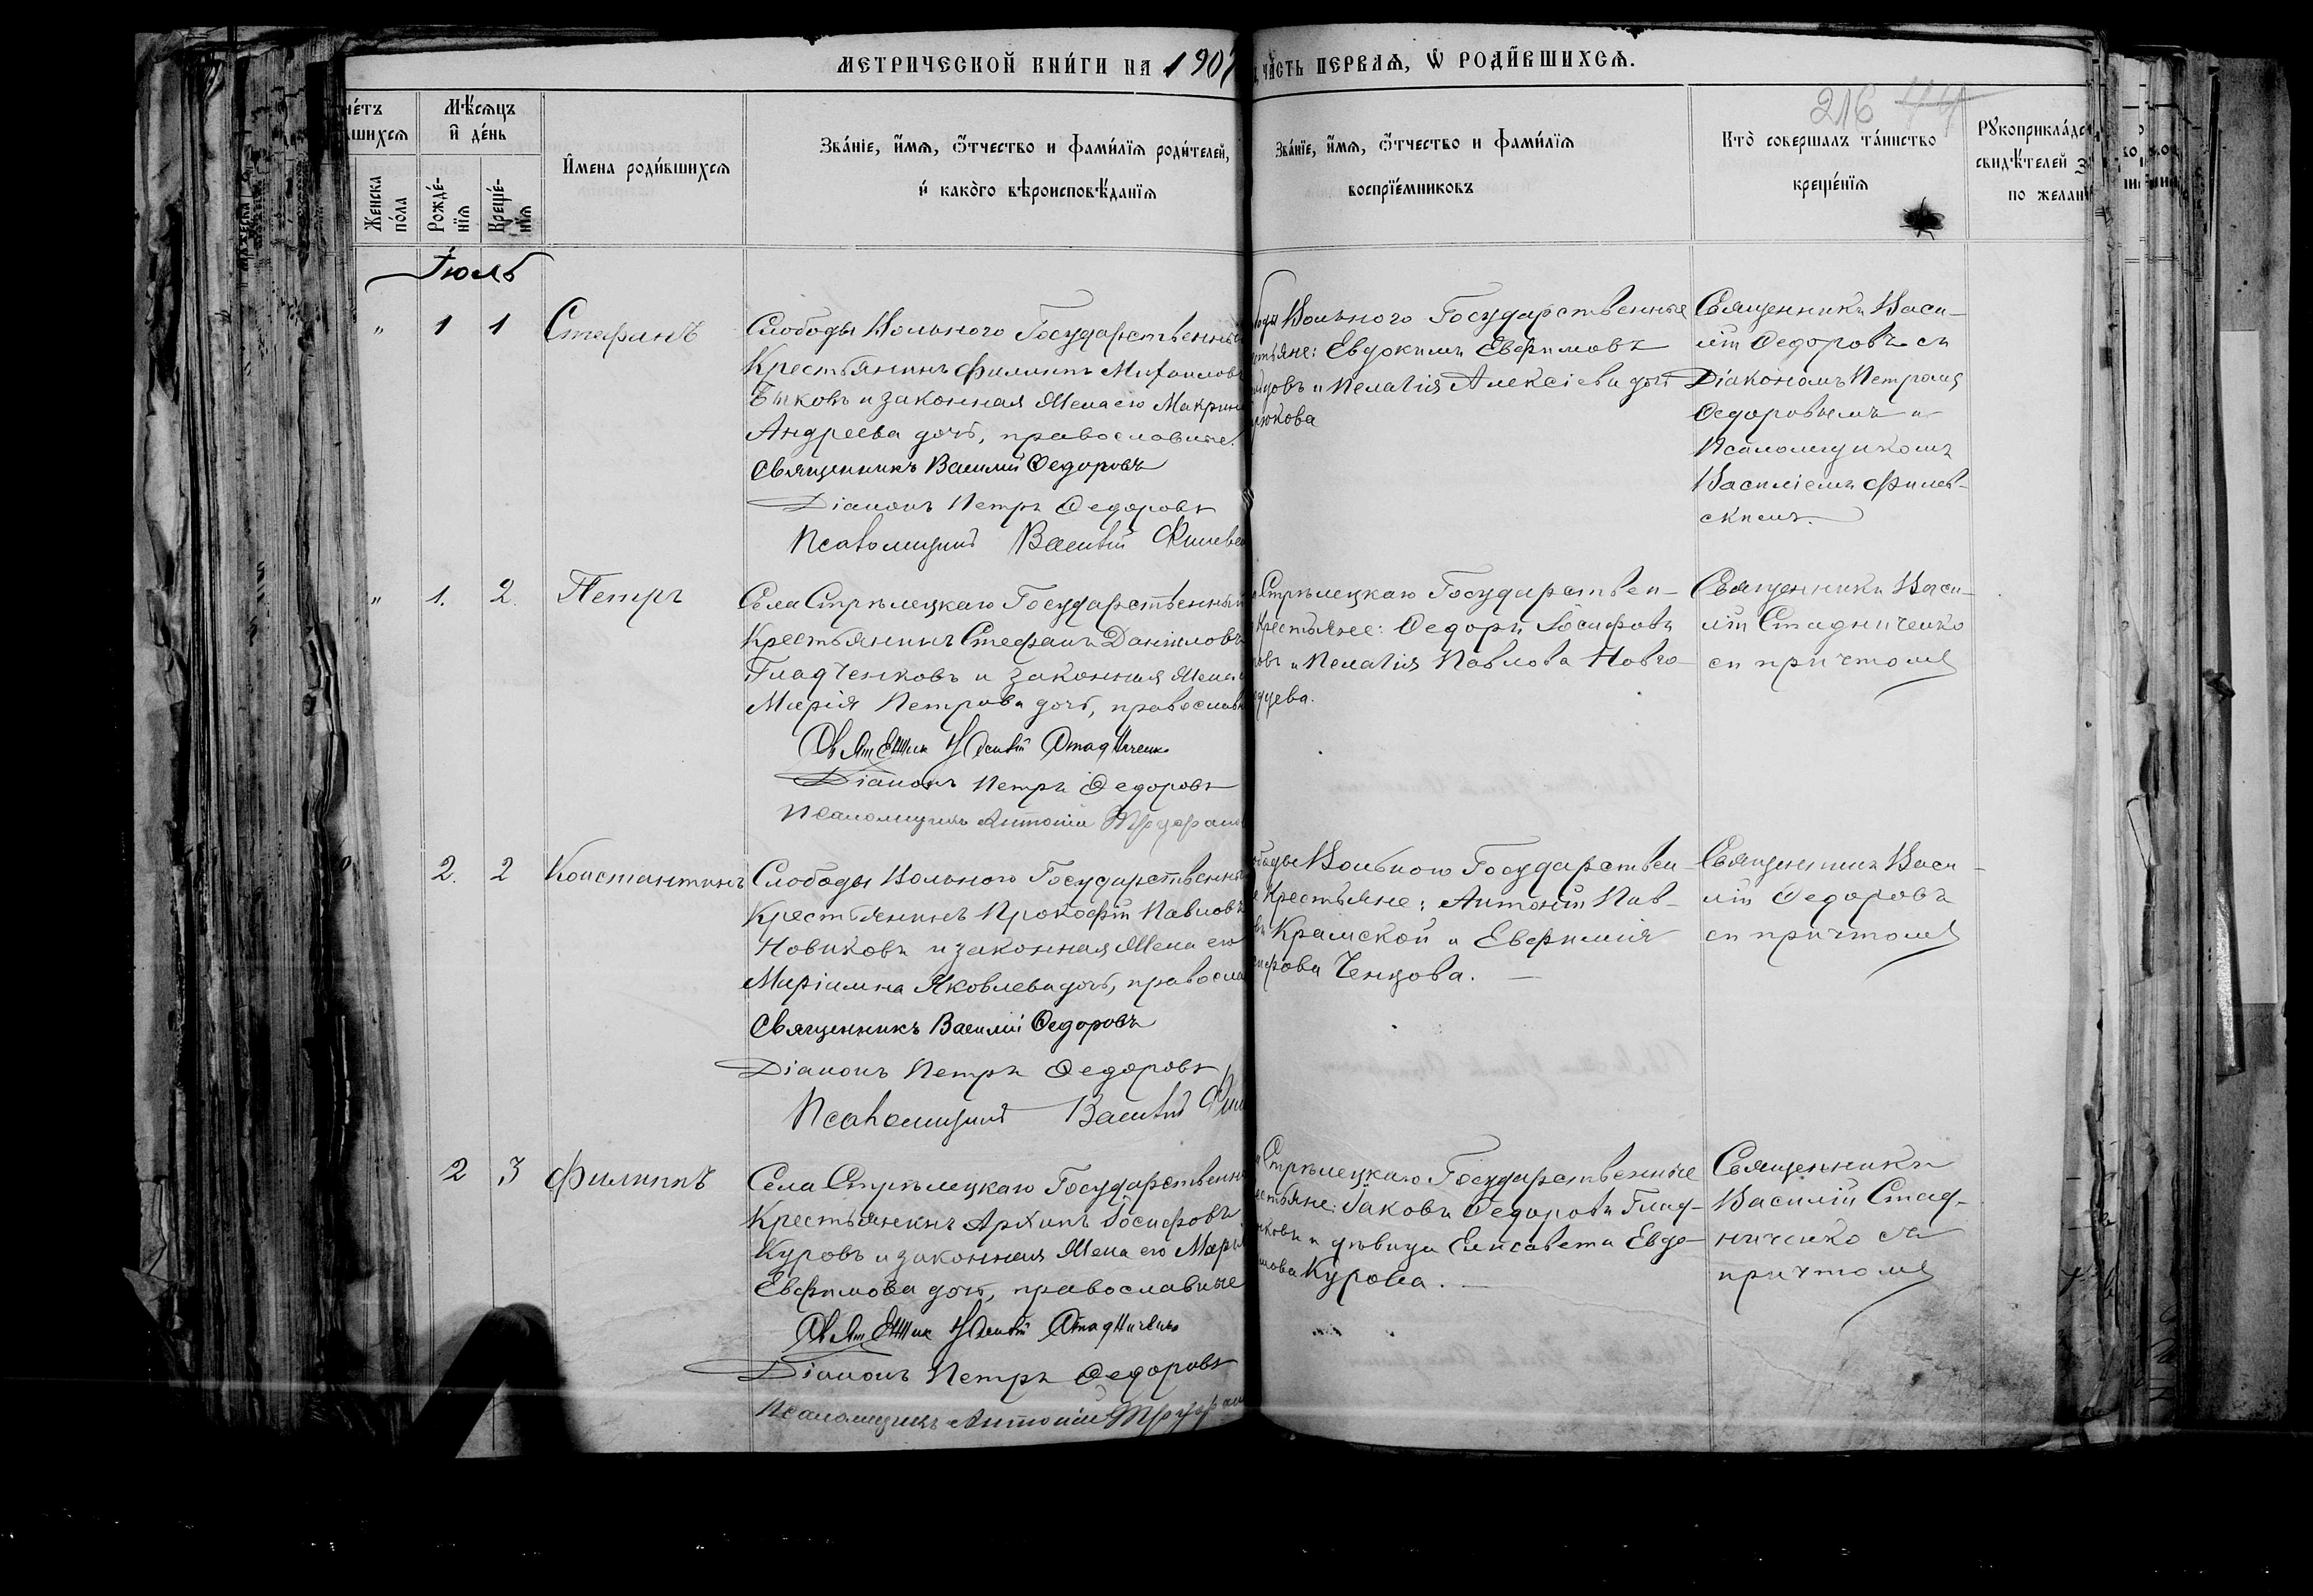 МЕТРИЧЕСКОЙ КНИ́ГИ НА 1907
ЧА́СТЬ ПЕРВАѦ, Ѡ҆ РОДИ́ВШИХСѦ.
216
Мѣ́сѧцъ
и҆ де́нь
Женска
по́ла
Рожде́-
нїѧ
Креще́-
нїѧ
И҆мена роди́вшихсѧ
Зва́нїе, и҆́мѧ, ѻ҆́тчество и фами́лїѧ роди́телей,
и҆ како́гѡ вѣроисповѣ́данїѧ
Зва́нїе, и҆́мѧ, ѻ҆́тчество и фами́лїѧ
воспрїе́мниковъ
Кто̀ соверша́лъ та́инство
креще́нїѧ
свидѣ́телей
по желан
Іюль
" 1 1 Стефанъ
Слободы Вольного Государственный
Крестьянинъ Филиппъ Михаиловъ
и законная Жена его Макрин
Андреева дочь, православные.
Священникъ Василий Федоровъ
Діаконъ Петръ Федоровъ
Псаломщикъ Василій
Вольного Государственные
Евдокимъ Евфимовъ
и Пелагія Алексіева дочь
Священникъ Васи-
лій Федоровъ съ
Діакономъ Петромъ
Федоровымъ и
Псаломщикомъ
Василіемъ Филев-
скимъ.
" 1. 2. Петръ
Села Стрѣлецкаго Государственный
Крестьянинъ Стефанъ Даніиловъ
Гладченковъ и законная Жена
Марія Петрова дочь, православн
Василій Стадниченко
Діаконъ Петръ Федоровъ
Псаломщикъ Антоній
Стрѣлецкаго Государствен-
Крестьяне: Федоръ Іосифовъ
и Пелагія Павлова Новго-
Священникъ Васи-
лій Стадниченко
съ причтомъ
2. 2 Константинъ
Слободы Вольного Государственный
Крестьянинъ Прокофій Павловъ
Новиковъ и законная Жена его
Маріамна Яковлева дочь, правосла
Священникъ Василій Федоровъ
Діаконъ Петръ Федоровъ
Псаломщикъ Василій
Вольного Государствен-
Крестьяне: Антоній Пав-
Крамской и Евфимія
Ченцова.
Священникъ Васи-
лій Федоровъ
съ причтомъ
2 3 Филиппъ
Села Стрѣлецкаго Государственн
Крестьянинъ Архипъ Іосифовъ
Куровъ и законная Жена его Марі
Евфимова дочь, православные
Василій Стадниченко
Діаконъ Петръ Федоровъ
Псаломщикъ Антоній
Стрѣлецкаго Государственные
Іаковъ Федоровъ Глад-
и дѣвица Елисавета Евдо-
Курова.
Священникъ
Василій Стад-
ниченко съ
причтомъ